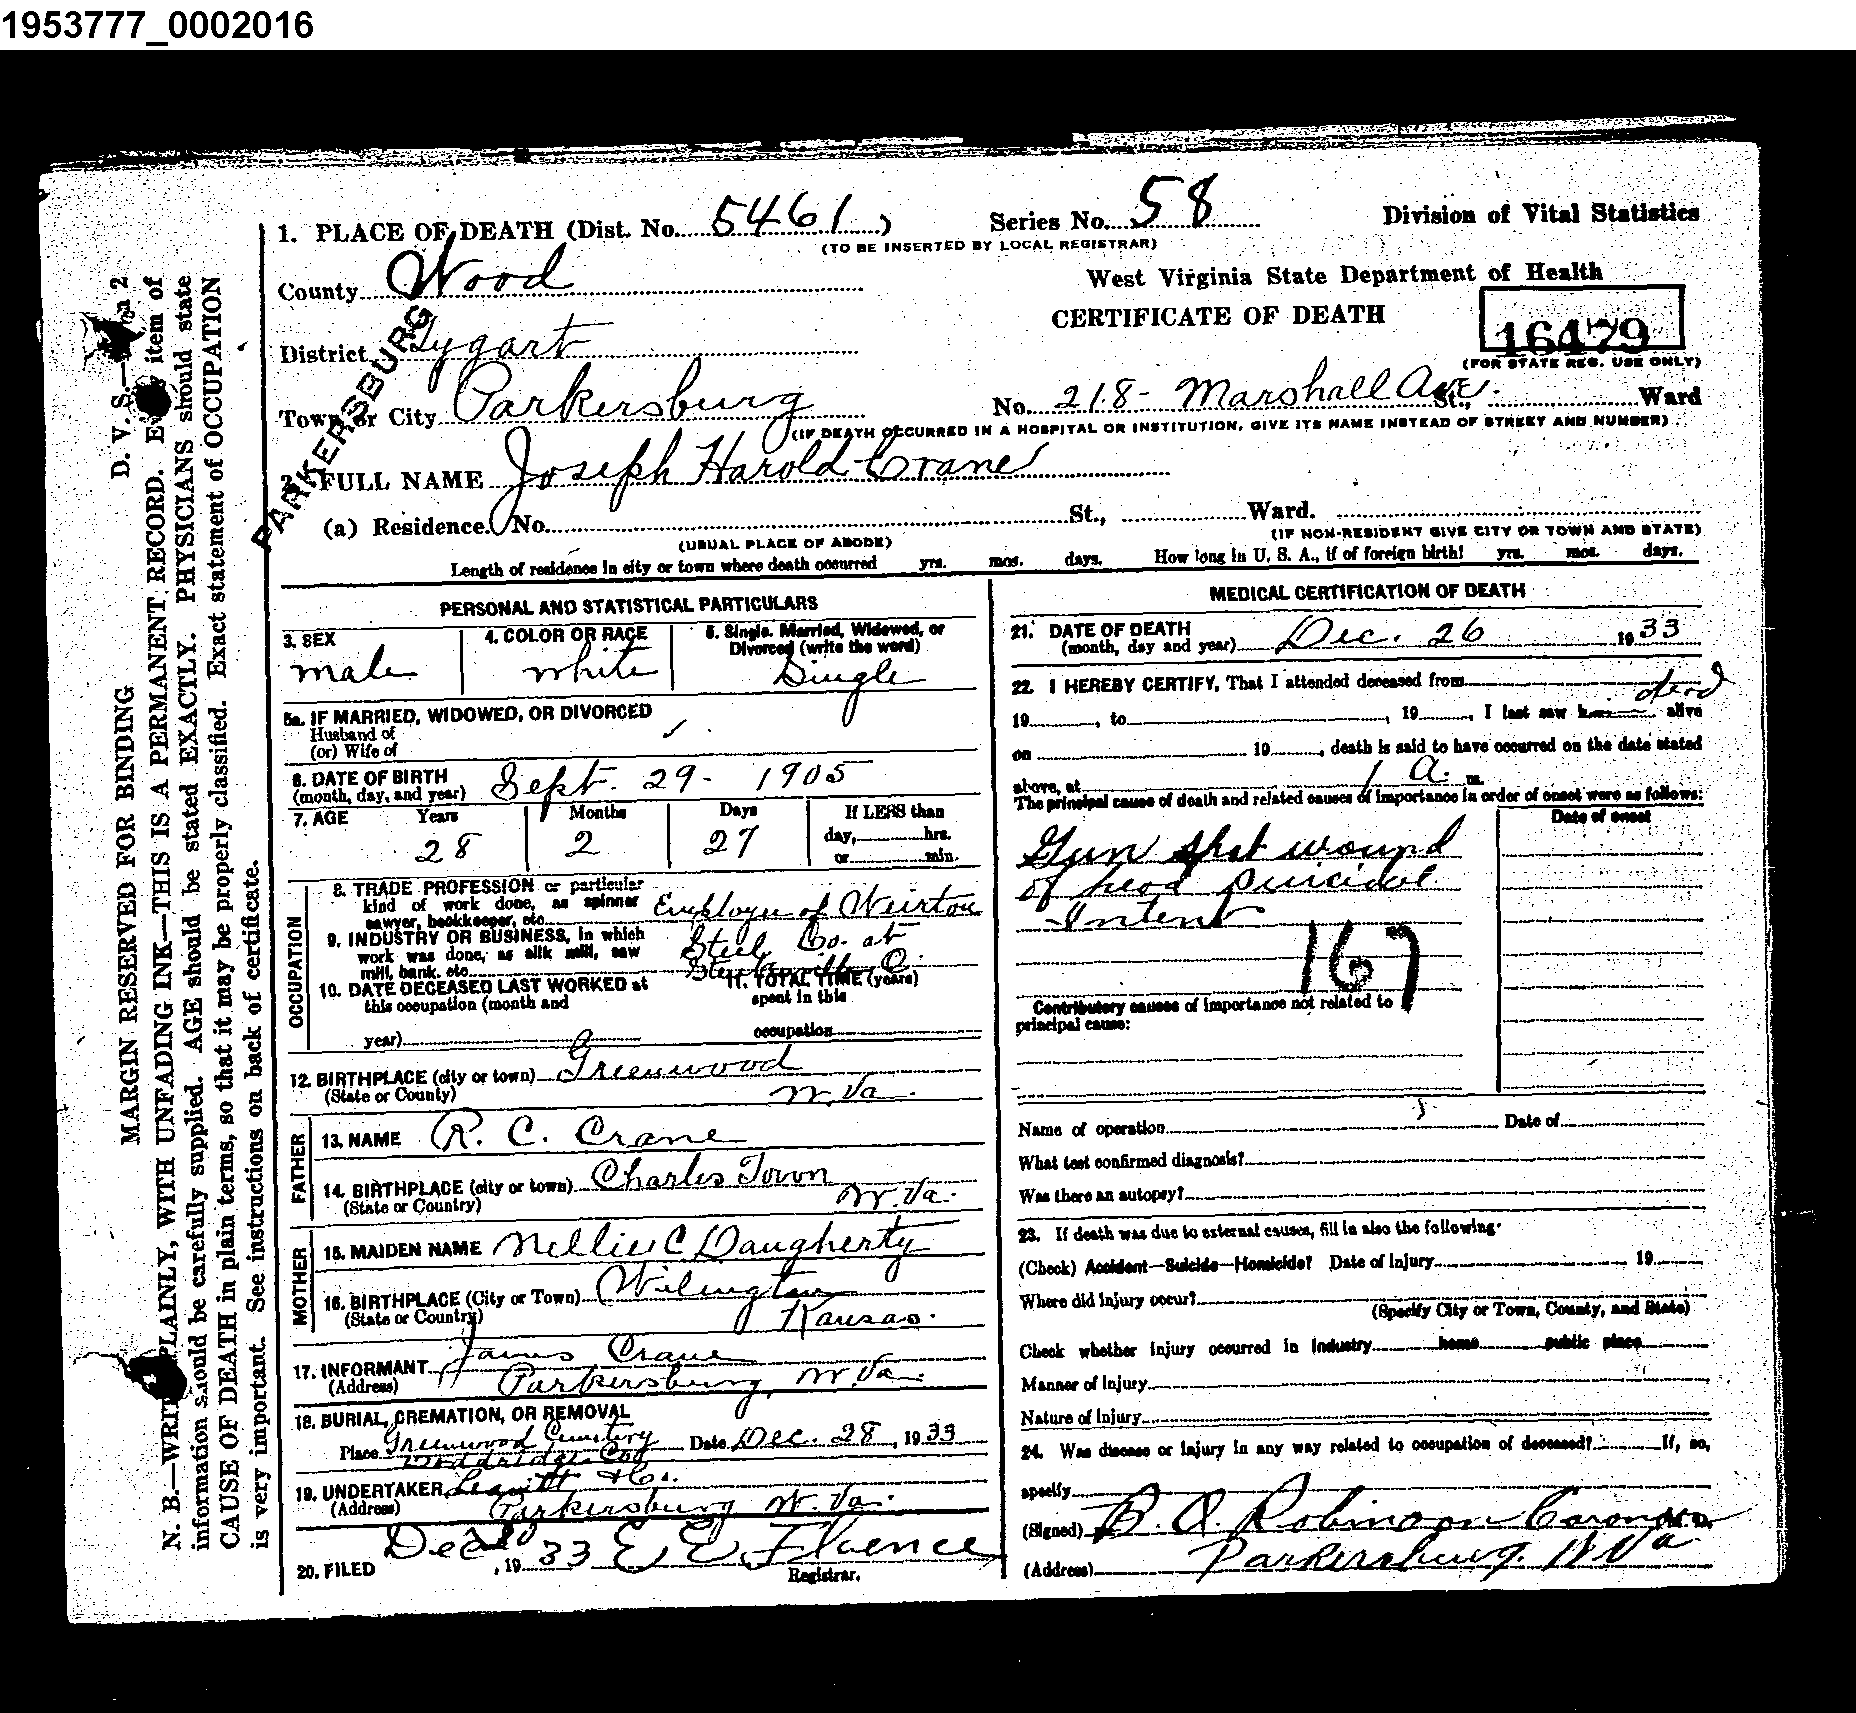 1953777_0002016
1. PLACE OF DEATH (Dist. No. 5461 ) Series No. 58 Division of Vital Statistics
(TO BE INSERTED BY LOCAL REGISTRAR)
County Wood West Virginia State Department of Health
CERTIFICATE OF DEATH
16479
District Tygart
(FOR STATE REG. USE ONLY)
PARKERSBURG
Town or City Parkersburg No. 218- Marshall Ave. St., Ward
(IF DEATH OCCURRED IN A HOSPITAL OR INSTITUTION, GIVE ITS NAME INSTEAD OF STREET AND NUMBER)
2. FULL NAME Joseph Harold Crane
(a) Residence. No. St., Ward.
(USUAL PLACE OF ABODE) (IF NON-RESIDENT GIVE CITY OR TOWN AND STATE)
Length of residence in city or town where death occurred yrs. mos. days. How long in U. S. A., if of foreign birth? yrs. mos. days.
PERSONAL AND STATISTICAL PARTICULARS
3. SEX 4. COLOR OR RACE 5. Single, Married, Widowed, or
Divorced (write the word)
male white Single
5a. IF MARRIED, WIDOWED, OR DIVORCED
Husband of
(or) Wife of
6. DATE OF BIRTH
(month, day, and year) Sept. 29- 1905
7. AGE Years Months Days If LESS than
28 2 27 day, hrs.
or min.
OCCUPATION
8. TRADE PROFESSION or particular
kind of work done, as spinner
sawyer, bookkeeper, etc. Employee of Weirton
9. INDUSTRY OR BUSINESS, in which
work was done, as silk mill, saw
mill, bank, etc. Steel Co. at
Steubenville O.
10. DATE DECEASED LAST WORKED at
this occupation (month and
year)
11. TOTAL TIME (years)
spent in this
occupation
12. BIRTHPLACE (city or town) Greenwood
(State or County) W. Va.
FATHER
13. NAME R. C. Crane
14. BIRTHPLACE (city or town) Charles Town
(State or Country) W. Va.
MOTHER
15. MAIDEN NAME Nellie C Daugherty
16. BIRTHPLACE (City or Town) Wilington
(State or Country) Kansas.
17. INFORMANT James Crane
(Address) Parkersburg, W. Va.
18. BURIAL, CREMATION, OR REMOVAL
Place Greenwood Cemetery Date Dec. 28, 1933
Doddridge Co
19. UNDERTAKER Leavitt & Co.
(Address) Parkersburg W. Va.
20. FILED Dec , 19 33 E E
Registrar.
MEDICAL CERTIFICATION OF DEATH
21. DATE OF DEATH
(month, day and year) Dec. 26 19 33
22. I HEREBY CERTIFY, That I attended deceased from
19 , to , 19 , I last saw h alive dead
on 19 , death is said to have occurred on the date stated
above, at 1 A. m.
The principal cause of death and related causes of importance in order of onset were as follows:
Date of onset
Gun shot wound
of head suicidal
Intent
167
Contributory causes of importance not related to
principal cause:
Name of operation Date of
What test confirmed diagnosis?
Was there an autopsy?
23. If death was due to external causes, fill in also the following:
(Check) Accident—Suicide—Homicide? Date of injury 19
Where did injury occur?
(Specify City or Town, County, and State)
Check whether injury occurred in industry home public place
Manner of injury
Nature of injury
24. Was disease or injury in any way related to occupation of deceased? If, so,
specify
(Signed) B. O. Robinson Coroner M. D.
(Address) Parkersburg. W Va
MARGIN RESERVED FOR BINDING D. V. S.
N. B.—WRITE PLAINLY, WITH UNFADING INK—THIS IS A PERMANENT RECORD. Every item of
information should be carefully supplied. AGE should be stated EXACTLY. PHYSICIANS should state
CAUSE OF DEATH in plain terms, so that it may be properly classified. Exact statement of OCCUPATION
is very important. See instructions on back of certificate.